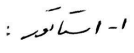 ۱- استاتور :